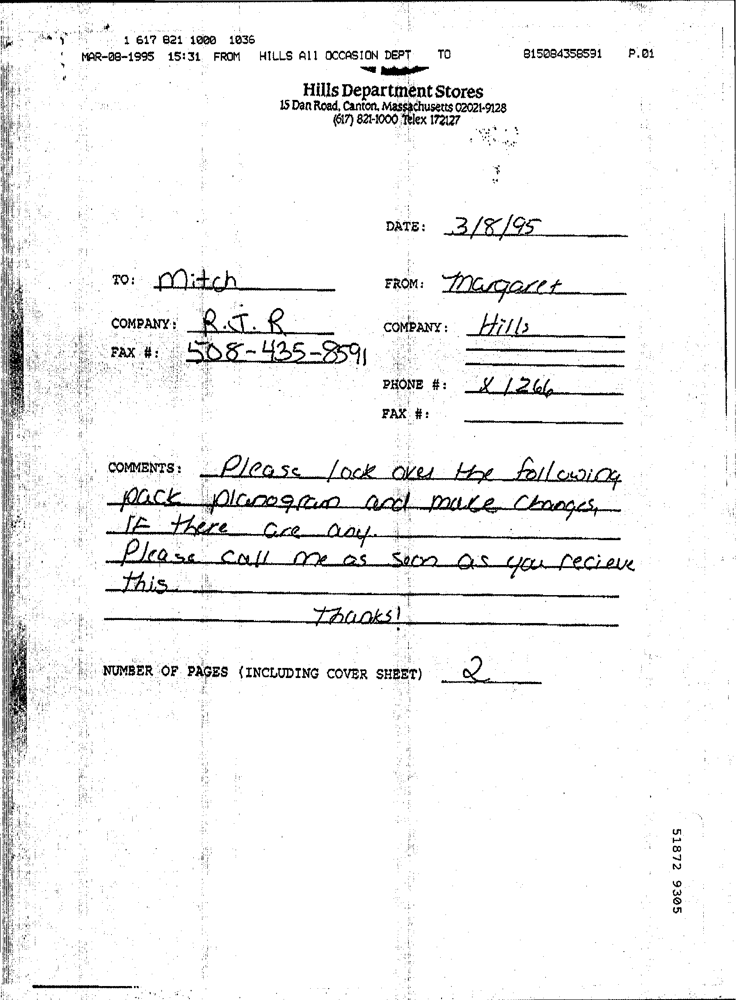 1 617 821 1000 1036
MAR-08-1995 15:31 FROM HILLS All OCCASION DEPT TO 815084358591 P.01
Hills Department Stores
15 Dan Road, Canton, Massachusetts 02021-9128
(617) 821-1000 Telex 172127
DATE: 3/8/95
TO: Mitch FROM: Margaret
COMPANY: R.J.R COMPANY: Hills
FAX #: 508-435-8591
PHONE #: X 1266
FAX #:
COMMENTS: Please look over the following
pack planogram and make changes,
IF there are any.
Please call me as soon as you recieve
this.
Thanks!
NUMBER OF PAGES (INCLUDING COVER SHEET) 2
51872 9305